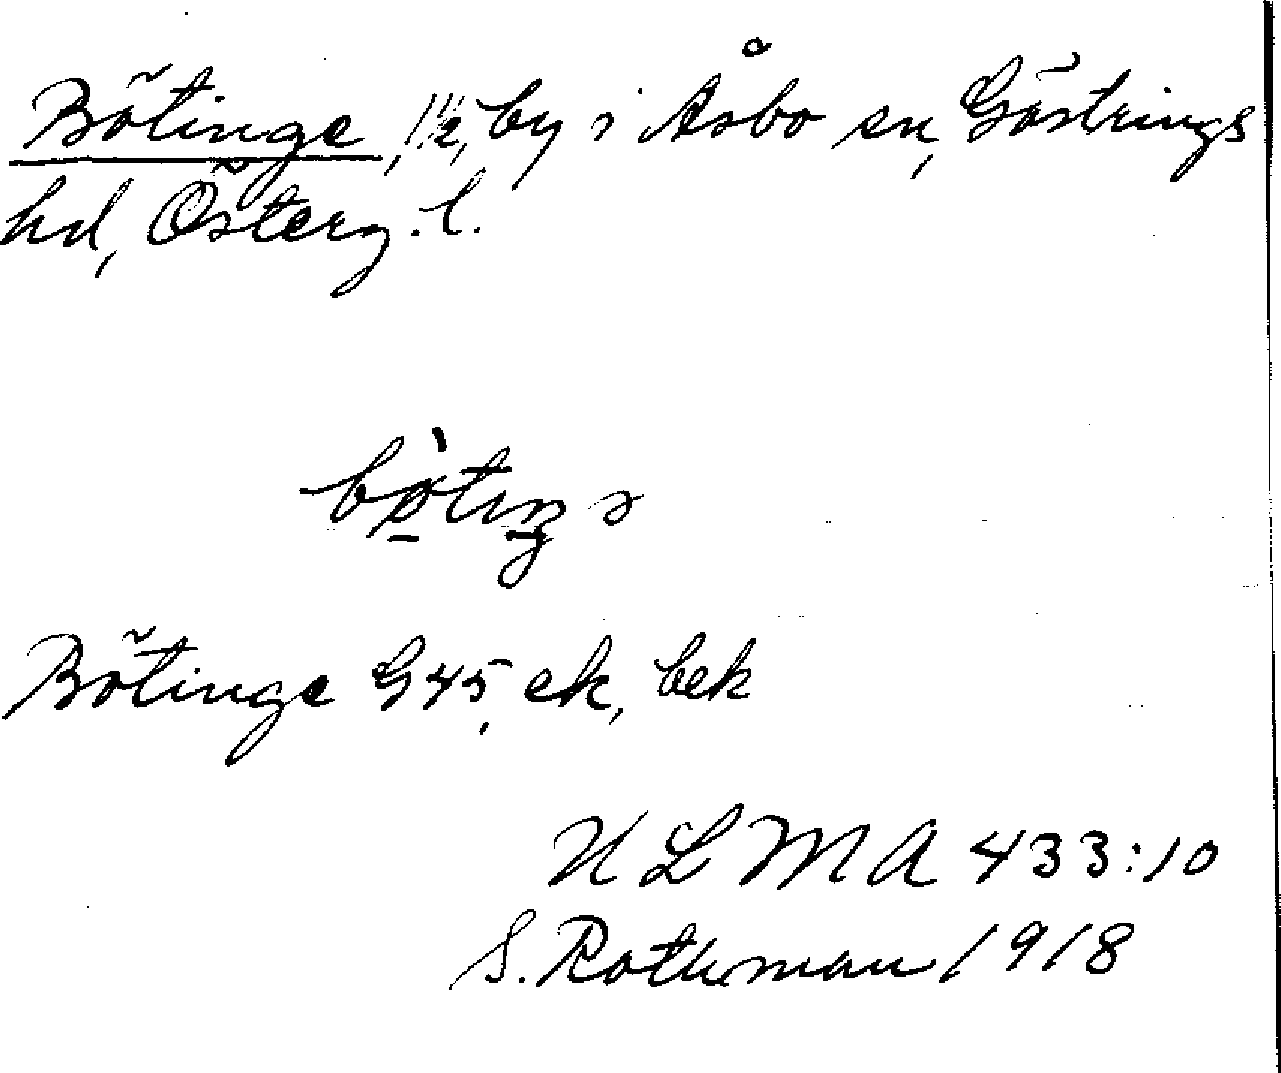 Bötinge, 1½, by i Åsbo sn, Göstrings
hd, Österg. l.
bø̀tiŋə
Bötinge G45, ek, bek
ULMA 433:10
S. Rothman 1918